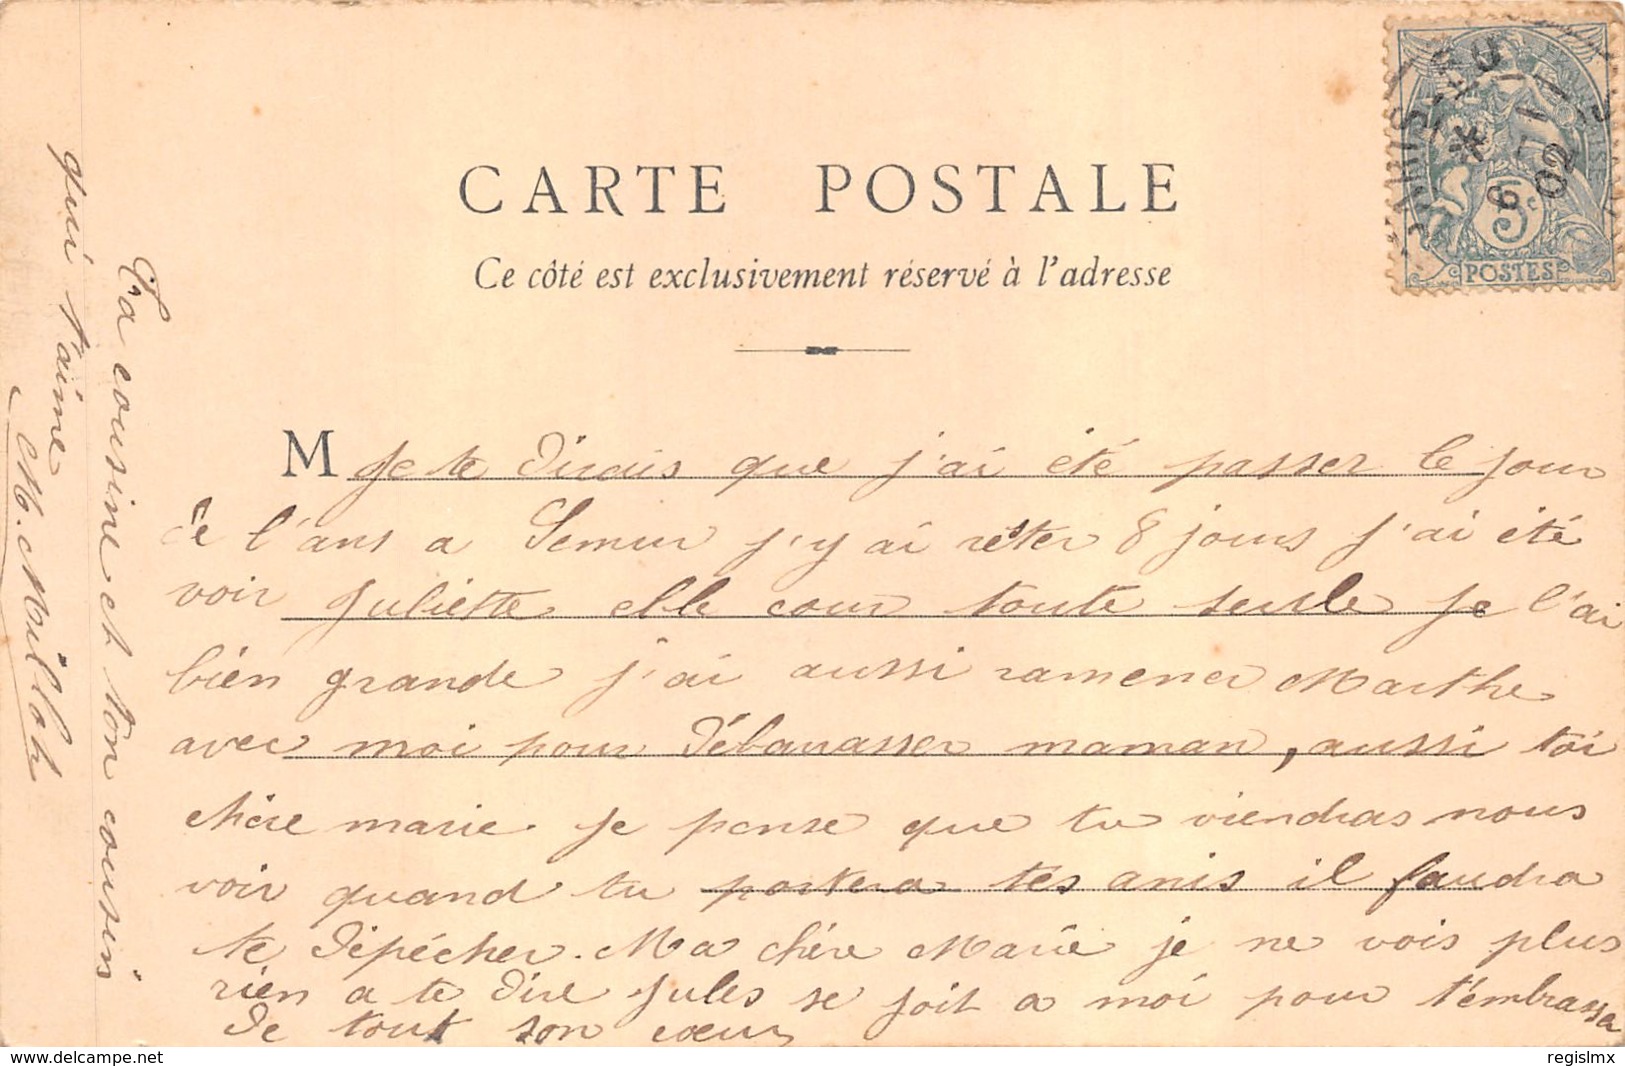 CARTE POSTALE
Ce côté est exclusivement réservé à l'adresse
5c
POSTES
6
02
M Je te dirais que j'ai été passer le jour
de l'ans a Semur j'y ai réster 8 jours j'ai été
voir Juliette elle cour toute seule je l'ai
bien grande j'ai aussi ramener Marthe
avec moi pour débarasser maman, aussi toi
chère marie. je pense que tu viendras nous
voir quand tu portera tes anis il faudra
te dépécher. Ma chère Marie je ne vois plus
rien a te dire Jules se joit a moi pour t'embrasser
de tout son cœur
Ta cousine et ton cousin
qui t'aime
M. Millot
delcampe.net
regislmx